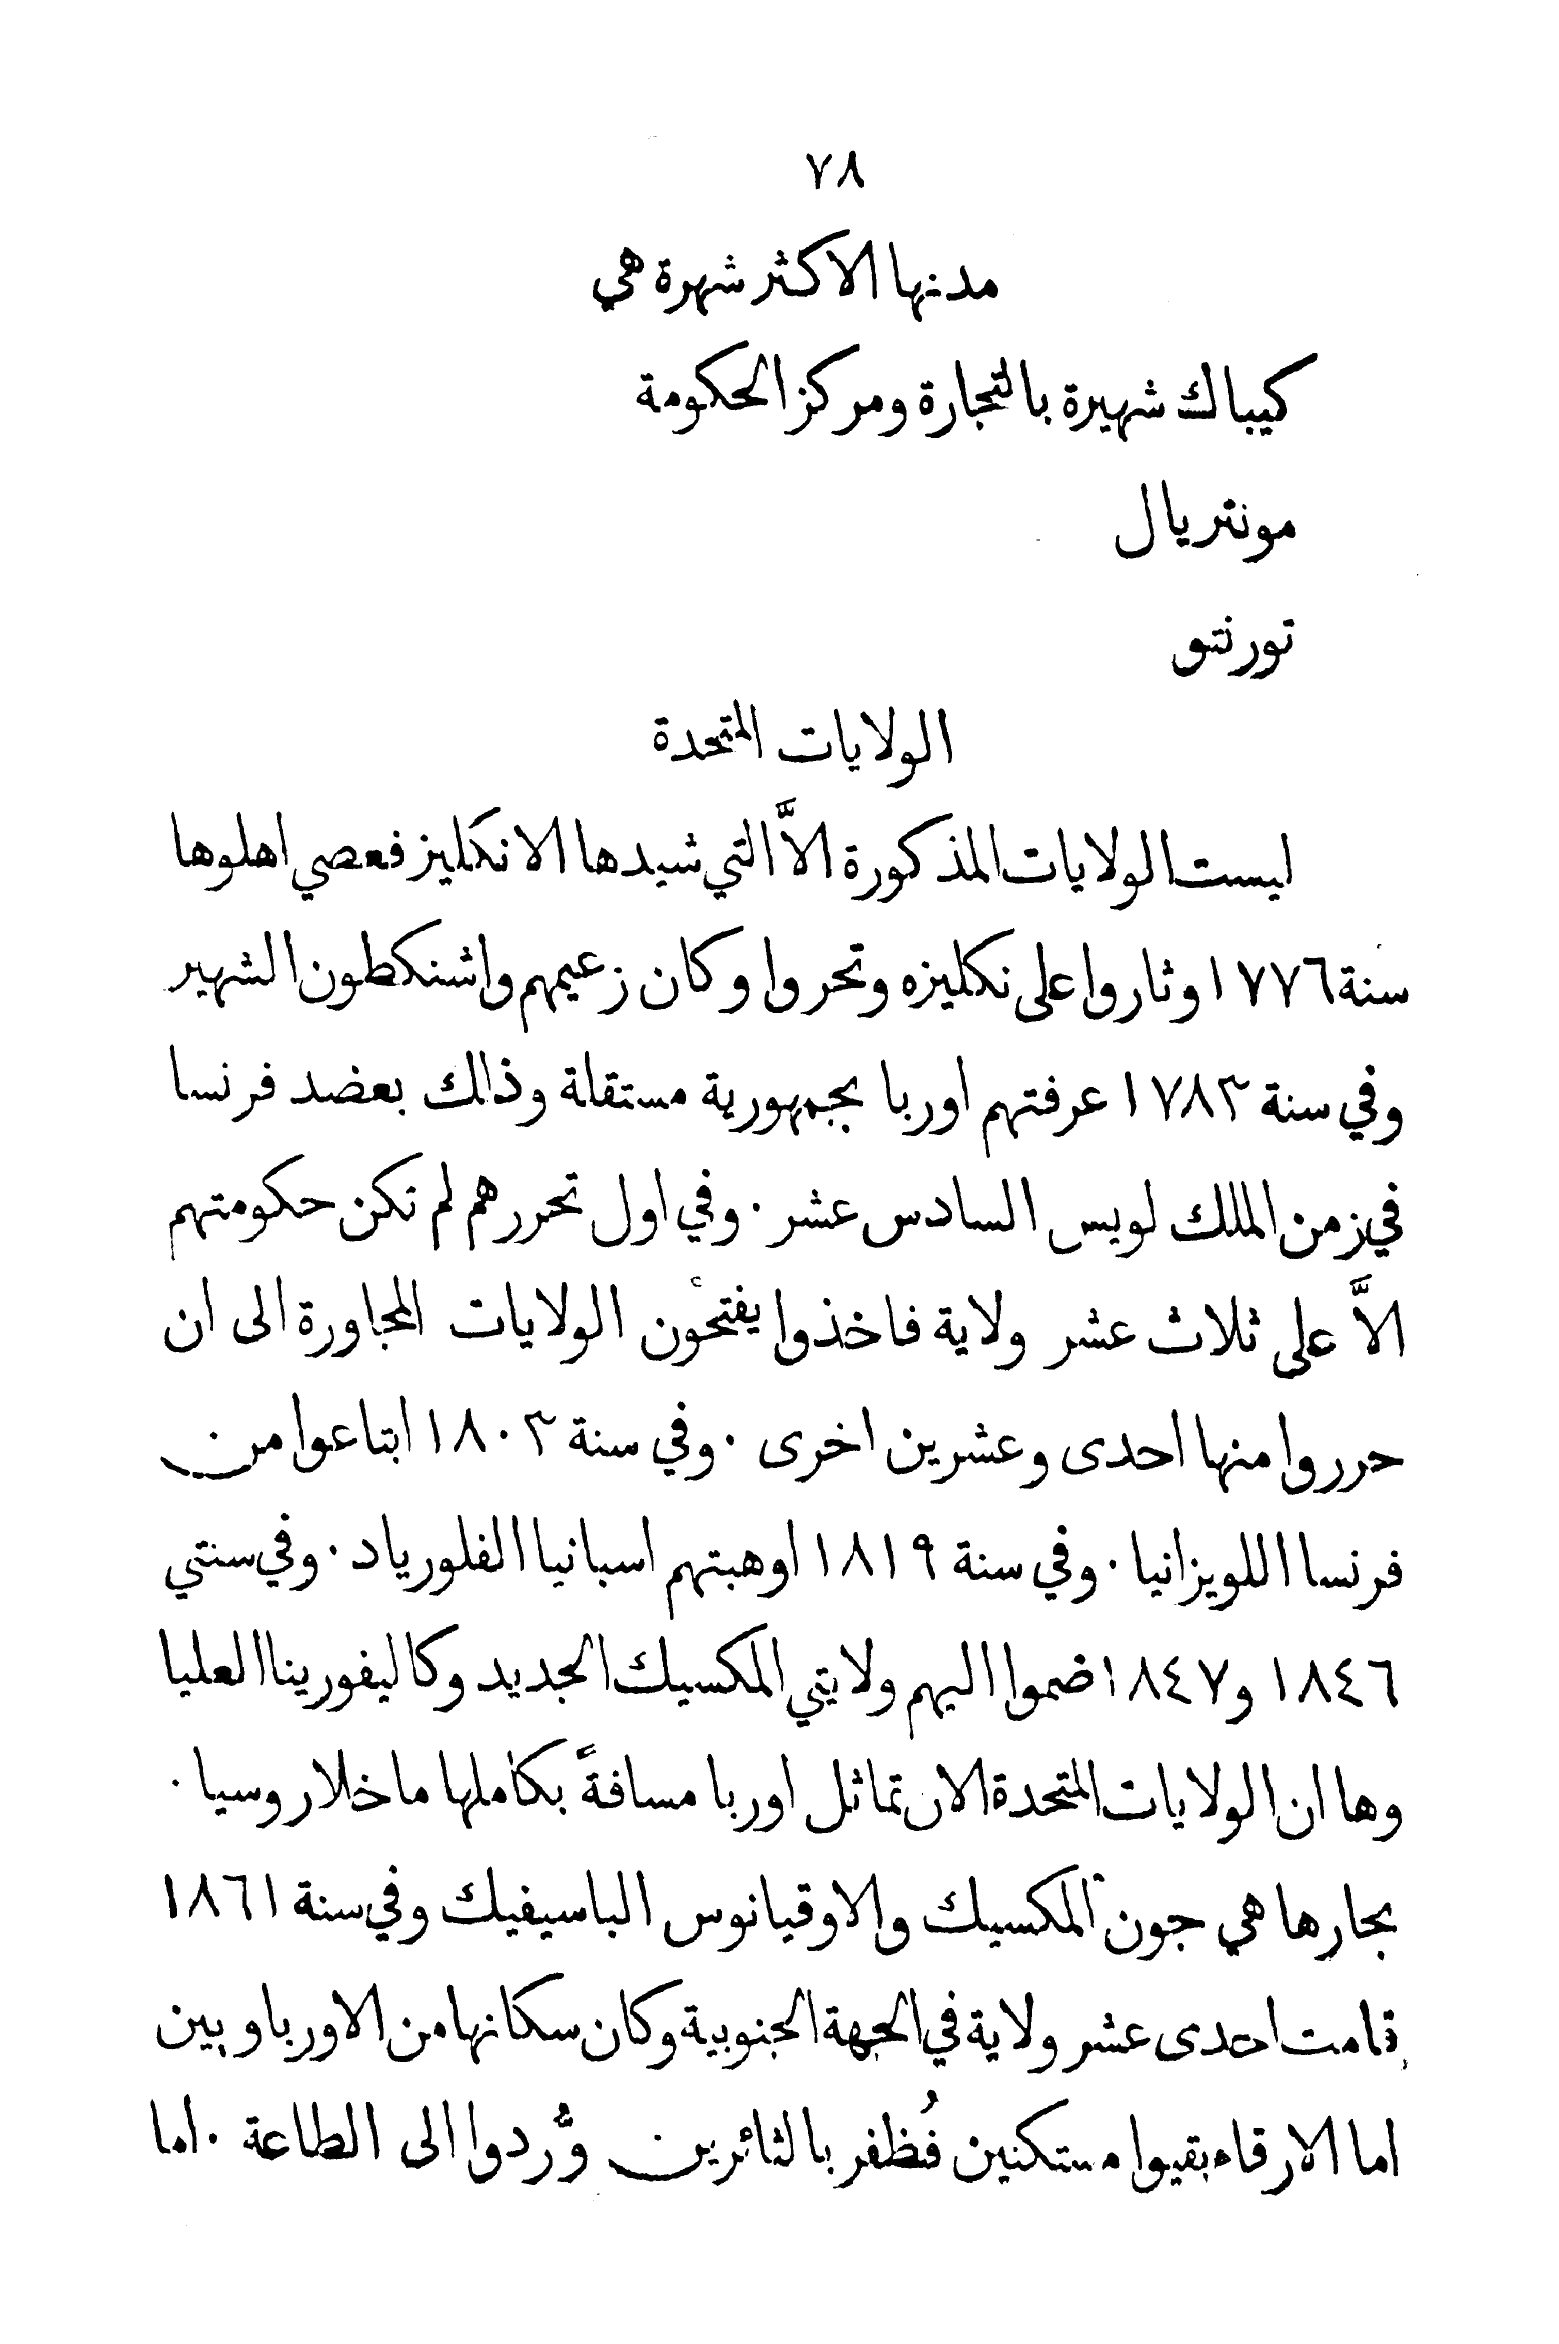 ٧٨
مدنها الاكثر شهرة هي
كيباك شهيرة بالتجارة ومركز الحكومة
مونتريال
تورنتو
الولايات المتحدة
ليست الولايات المذكورة الاَّ التي شيدها الانكليز فعصي اهلوها
سنة ١٧٧٦ وثاروا على نكليزه وتحروا وكان زعيمهم واشنكطون الشهير
وفي سنة ١٧٨٣ عرفتهم اوربا بجمهورية مستقلة وذلك بعضد فرنسا
في زمن الملك لويس السادس عشر ٠ وفي اول تحررهم لم تكن حكومتهم
الاَّ على ثلاث عشر ولاية فاخذوا يفتحون الولايات المجاورة الى ان
حرروا منها احدى وعشرين اخرى ٠ وفي سنة ١٨٠٣ ابتاعوا من
فرنسا اللويزانيا ٠ وفي سنة ١٨١٩ اوهبتهم اسبانيا الفلورياد ٠ وفي سنتي
١٨٤٦ و١٨٤٧ ضموا اليهم ولايتي المكسيك الجديد وكاليفورينا العليا
وها ان الولايات المتحدة الان تماثل اوربا مسافةً بكاملها ما خلا روسيا ٠
بحارها هي جون المكسيك والاوقيانوس الباسيفيك وفي سنة ١٨٦١
قامت احدى عشر ولاية في الجهة الجنوبية وكان سكانها من الاورباوبين
اما الارقاء بقيوا مستكنين فُظفر بالثائرين ورُّدوا الى الطاعة ٠ اما